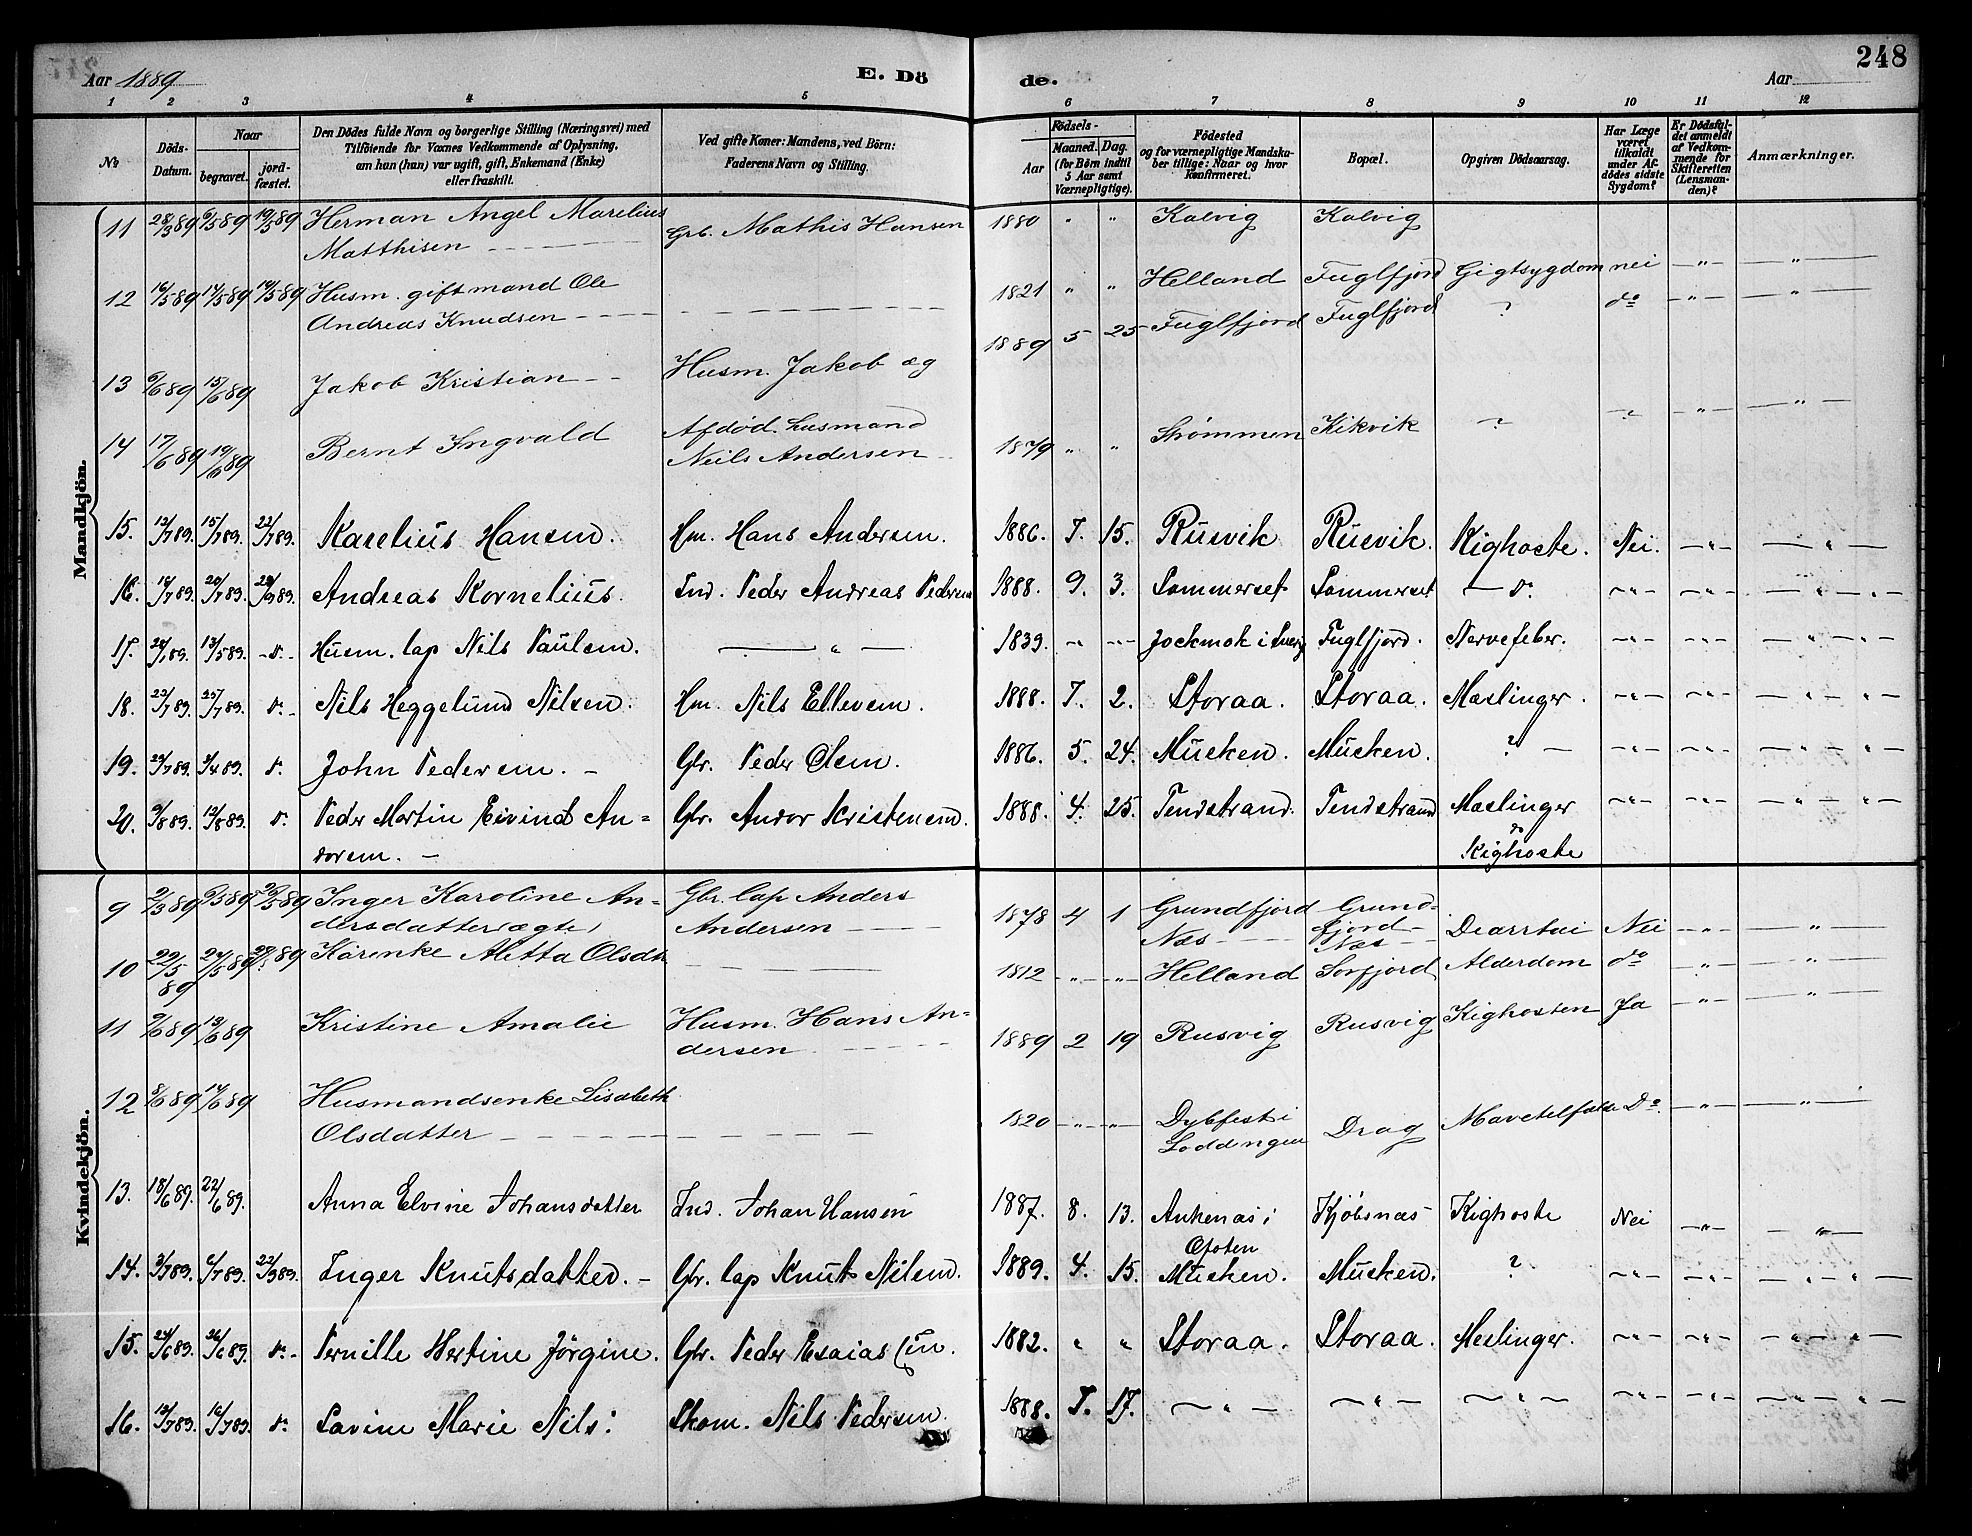 248
Aar 1889 E. Dö de. Aar
1 2 3 4 5 6 7 8 9 10 11 12
No
Döds-Datum.
Naar
begravet.
jord-fæstet.
Den Dödes fulde Navn og borgerlige Stilling (Næringsvei) med
Tilföiende for Voxnes Vedkommende af Oplysning,
om han (hun) var ugift, gift, Enkemand (Enke)
eller fraskilt.
Ved gifte Koner: Mandens, ved Börn:
Faderens Navn og Stilling.
Födsels-
Aar
Maaned. Dag.
(for Börn indtil
5 Aar samt
Værnepligtige).
Födested
og for værnepligtige Mandska-
ber tillige: Naar og hvor
Konfirmeret.
Bopæl.
Opgiven Dödsaarsag.
Har Læge
været
tilkaldt
under Af-
dödes sidste
Sygdom?
Er Dödsfal-
det anmeldt
af Vedkom-
mende for
Skifteretten
(Lensman-
den)?
Anmærkninger.
Mandkjön.
11 28/3 89 6/5 89 19/5 89 Herman Angel Marelius Grb. Mathis Hansen 1880 " " Kalvig Kalvig
Matthisen
12 16/5 89 17/5 89 19/5 89 Husm. gift mand Ole 1821 " " Helland Fuglfjord Gigtsygdom nei — " — — " —
Andreas Knudsen
13 9/6 89 15/6 89 Jakob Kristian Husm. Jakob æg 1889 5 25 Fuglfjord Fuglfjord ? do — " — — " —
14 17/6 89 19/6 89 Bernt Ingvald Afdød. husmand 1879 " " Strømmen Kikvik ? ? — " — — " —
Neils Andersen
15. 13/7 89. 15/7 89. 22/7 89. Karelius Hansen. Hm. Hans Andersen. 1886. 7. 15. Rusvik Rusvik. Kighoste. Nei. — " — — " —
16. 18/7 89. 20/7 89. Andreas Kornelius. Ind. Peder Andreas Pedersen 1888. 9. 3. Sommerset Sommerset — d.
17. 13/5 89. — d. — Husm. lap Nils Paulsen. — " — 1839. Jockmok i Sverig Fuglfjord. Nervefeber.
18. 23/7 89. 25/7 89. d. — Nils Heggelund Nilsen. Hm. Nils Ellevsen. 1888. 7. 2. Storaa. Storaa. Meslinger.
19. d. John Pedersen. Gbr. Peder Olsen. 1886. 5. 24. Musken. Musken. ?
20. 9/8 89. 12/8 89. d. Peder Martin Eivind An= Gbr. Andor Kristensen. 1888. 4. 25. Tendstrand. Tendstrand Meslinger
dorsen. Kighoste
Kvindekjön.
9 2/3 89 6/5 89 Inger Karoline An= Gbr. lap Anders 1878 4 1 Grundfjord Grund= Diarrhai Nei — " — — " —
dersdatter (ægte) Andersen Næs fjord
Næs
10 22/5 89 24/5 89 Karenke Aletta Olsdtr 1812 Helland Sorfjord Alderdom do — " — — " —
11 9/6 89 13/6 89 Kristine Amalie Husm. Hans An= 1889 2 19 Rusvig Rusvig Kighosten Ja — " — — " —
dersen
12 8/6 89 14/6 89 Husmandsenke Lisabeth 1820 Dybfest i Drag Do. — " — — " —
Olsdatter Loddingen
13. 18/6 89. 22/6 89. Anna Elvine Johansdatter Ind. Johan Hansen 1887. 8. 13. Ankenæs i Kjöbsnæs Kighoste Nei — " — — " —
Ofoten
14. 3/7 89. 6/7 89. Inger Knutsdatter. Gbr. lap Knut Nilsen. 1889. 4. 15. Musken. Musken. ?
15. 24/6 89. 26/6 89. d. — Pernille Hertine Jörgine. Gbr. Peder Esaias 1882. " " Storaa. Storaa. Meslinger.
16. 13/7 89. 16/7 89. d. Lavine Marie Nils: Skom. Nils Pedersen 1888. 7. 17. — " — — " — — " —